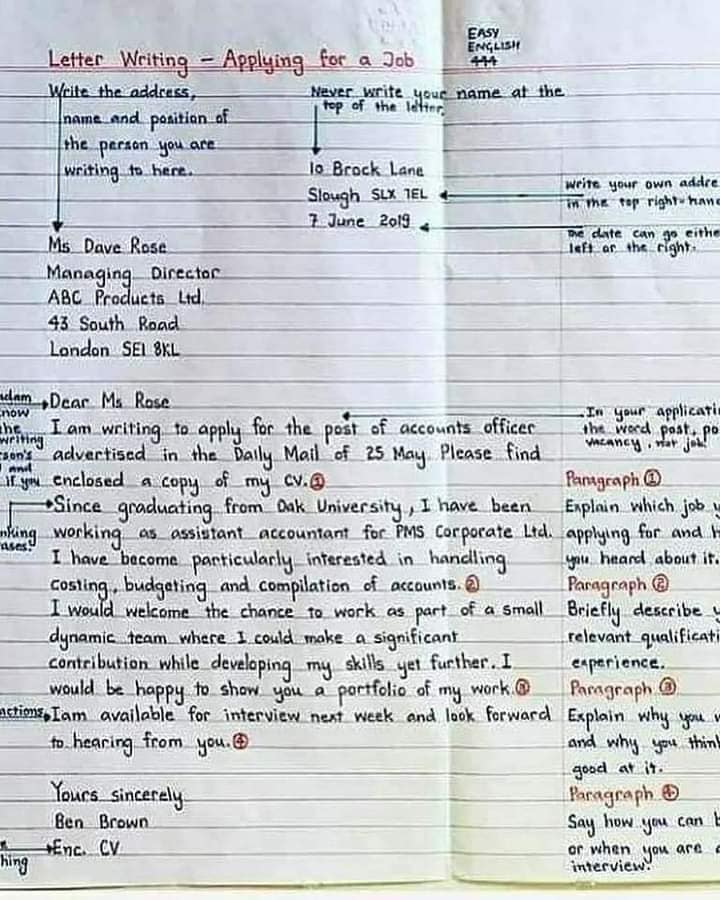 EASY
ENGLISH
444
Letter Writing – Applying for a Job
Write the address,
name and position of
the person you are
writing to here.
Never write your name at the
top of the letter.
10 Brock Lane
Slough SLX 7EL
7 June 2019
write your own addre
in the top right-hand
The date can go eithe
left or the right.
Ms Dave Rose
Managing Director
ABC Products Ltd.
43 South Road
London SE1 8KL
adam
now
the
writing
son's
and
if you
Dear Ms Rose
I am writing to apply for the post of accounts officer
advertised in the Daily Mail of 25 May. Please find
enclosed a copy of my CV.①
Since graduating from Oak University, I have been
working as assistant accountant for PMS Corporate Ltd.
I have become particularly interested in handling
costing, budgeting and compilation of accounts.②
I would welcome the chance to work as part of a small
dynamic team where I could make a significant
contribution while developing my skills yet further. I
would be happy to show you a portfolio of my work.③
Iam available for interview next week and look forward
to hearing from you.④
nking
ases!
actions
Yours sincerely
Ben Brown
Enc. CV
hing
In your applicati
the word post, po
vacancy, not job!
Paragraph ①
Explain which job y
applying for and h
you heard about it.
Paragraph ②
Briefly describe y
relevant qualificati
experience.
Paragraph ③
Explain why you w
and why you think
good at it.
Paragraph ④
Say how you can b
or when you are a
interview.